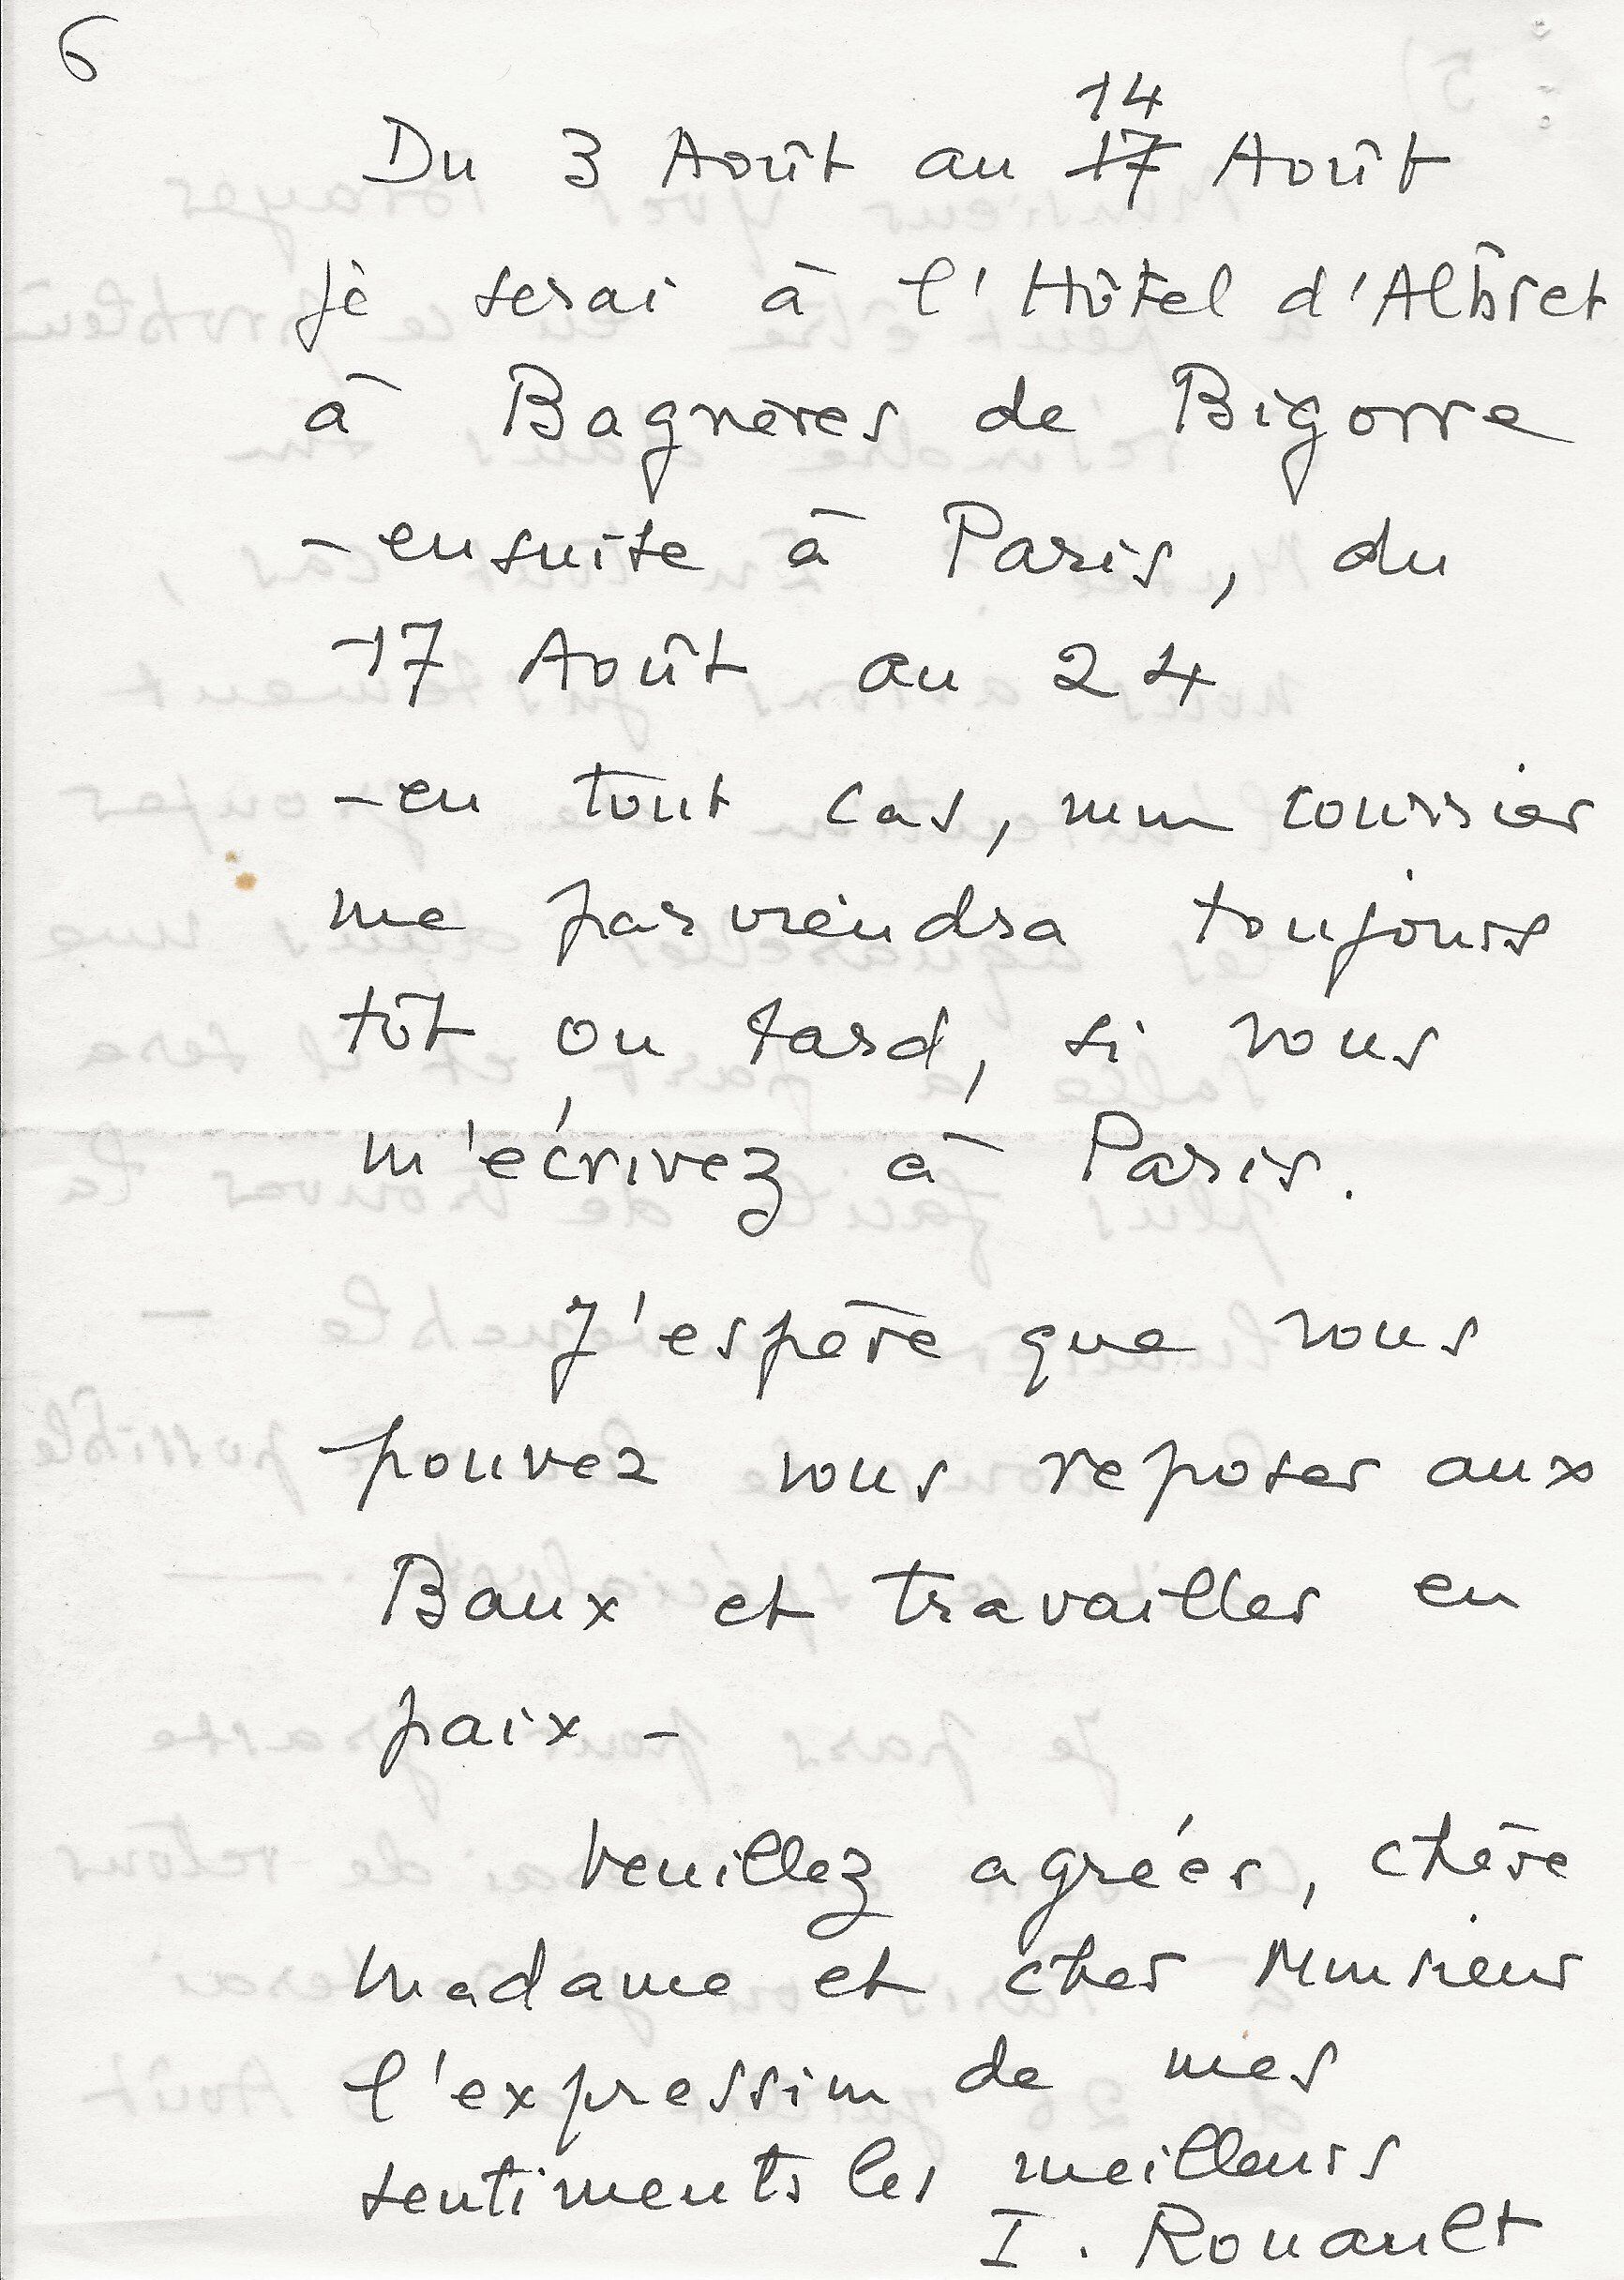 6
14
Du 3 Août au 17 Août
je serai à l'Hôtel d'Albret
à Bagnères de Bigorre
- ensuite à Paris, du
17 Août au 24
- en tout cas, mon courrier
me parviendra toujours
tôt ou tard, si vous
m'écrivez à Paris.
J'espère que vous
pouvez vous reposer aux
Baux et travailler en
paix -
Veuillez agréer, chère
Madame et cher Monsieur
l'expression de mes
sentiments les meilleurs
I. Rouault